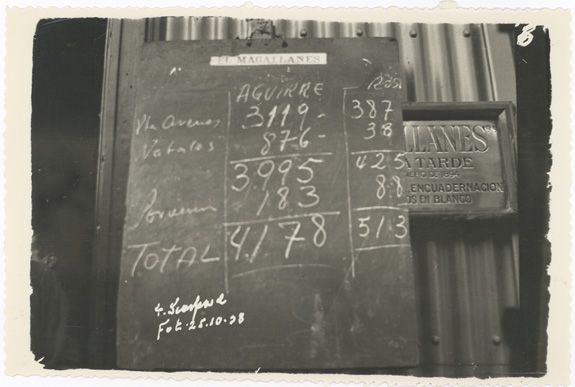 8
EL MAGALLANES
AGUIRRE Ross
Pta Arenas 3119- 387
Natales 876- 38
3995 425
Porvenir 183 88
TOTAL 4178 513
LLANES"
A TARDE
DE 1894
ENCUADERNACION
OS EN BLANCO
Fot. 25.10.38